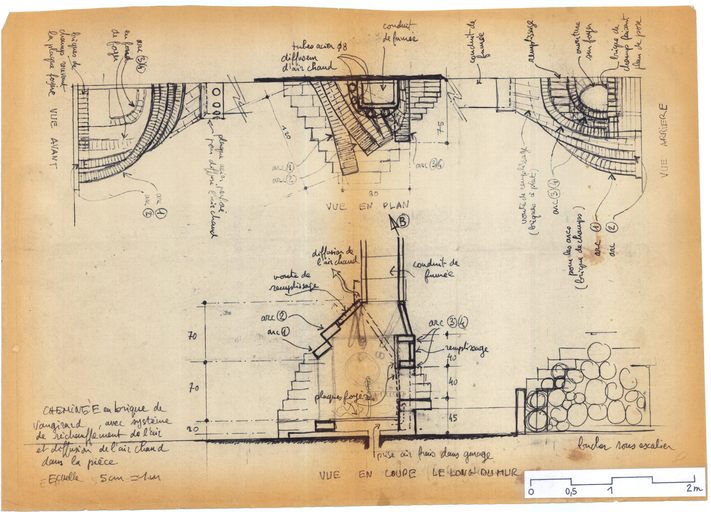 briques de
champ suivant
la plaque foyère
en fond
de foyer
arc ③④
VUE AVANT
arc ④
arc ②
plaque
pour diffuser l'air chaud
tubes acier Ø8
diffusion
d'air chaud
conduit
de fumée
130
arc ①
arc ②
75
30
VUE EN PLAN
conduit de
fumée
remplissage
ouverture
sur foyer
brique de
champ suivant
plan de pose
VUE ARRIERE
voute de remplissage
(briques à plat)
arc ③④
pour les arcs
(brique de champs)
arc ①
arc ②
B
diffusion de
l'air chaud
conduit de
fumée
voute de
remplissage
arc ②
arc ①
arc ③④
remplissage
70
70
20
40
40
45
plaques foyère
CHEMINÉE en brique de
Vaugirard, avec système
de réchauffement de l'air
et diffusion de l'air chaud
dans la pièce
Echelle 5cm = 1m
prise air frais dans garage
VUE EN COUPE LE LONG DU MUR
bucher sous escalier
0 0,5 1 2m